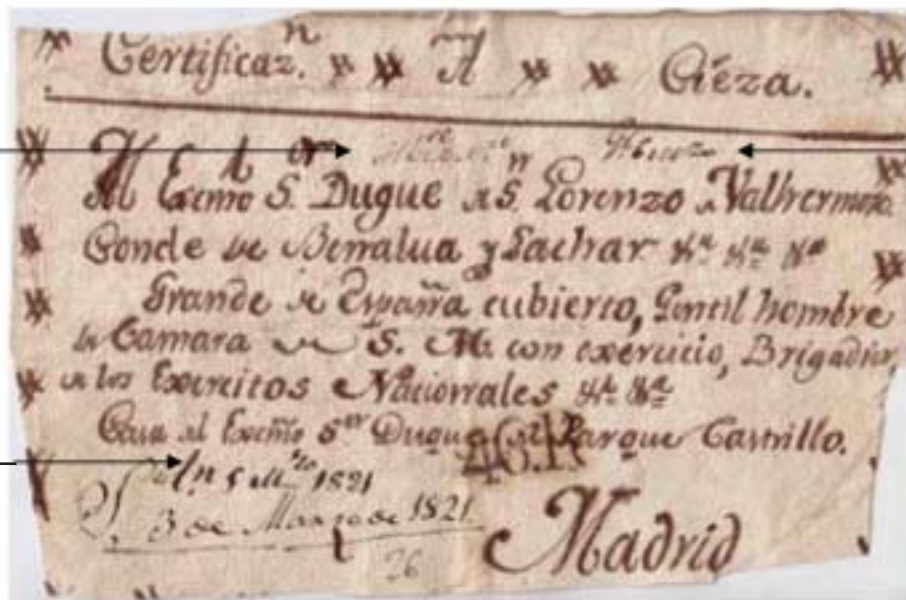 Certificaz.n A Cieza.
Al Exmo S.or Dugue de S.n Lorenzo de Valhermoso
Conde de Benalua y Lachar &a &a &a
Grande de España cubierto, Gentil hombre
de Camara de S. M. con exercicio, Brigadier,
de los Exercitos Nacionales &a &a
Casa del Exmo S.or Duque del Parque Castrillo.
46.R
5 M.zo 1821
3 de Marzo de 1821.
Madrid